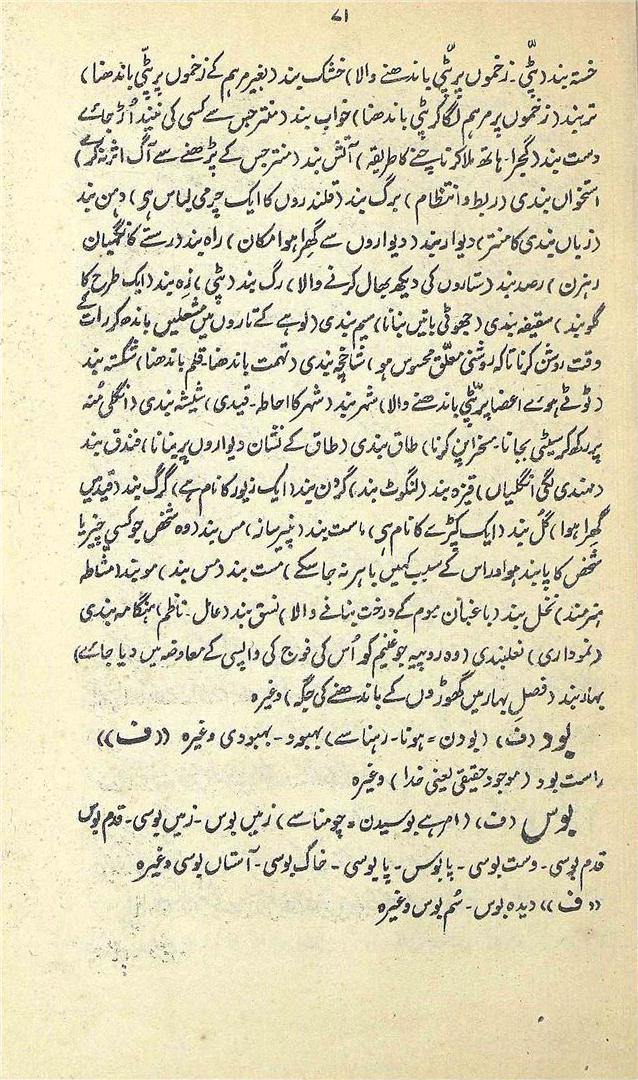 ۷۱
خستہ بند (پٹّی۔ زخموں پر پٹّی باندھنے والا) خشک بند (بغیر مرہم کے زخموں پر پٹّی باندھنا)
تر بند (زخموں پر مرہم لگا کر پٹّی باندھنا) خواب بند (منتر جس سے کسی کی نیند اُڑ جائے
دست بند (گجرا۔ ہاتھ ملا کر ناچنے کا طریقہ) آتش بند (منتر جس کے پڑھنے سے آگ اثر نہ کرے)
استخواں بندی (ربط و انتظام) برگ بند (قلندروں کا ایک چرمی لباس ہی) دہن بند
(زباں بندی کا منتر) دیوار بند (دیواروں سے گھِرا ہوا مکان) راہ بند (رستے کا نگہبان
رہزن) رصد بند (ستاروں کی دیکھ بھال کرنے والا) رگ بند (پٹی) زہ بند (ایک طرح کا
گلوبند) سقیفہ بندی (جھوٹی باتیں بنانا) سیم بندی (لوہے کے تاروں میں مشعلیں باندھ کر رات کے
وقت روشن کرنا تاکہ روشنی معلّق محسوس ہو) شاخچہ بندی (تہمت باندھنا۔ قلم باندھنا) شکستہ بند
(ٹوٹے ہوئے اعضا پر پٹّی باندھنے والا) شہر بند (شہر کا احاطہ۔ قیدی) شیشہ بندی (انگلی مُنہ
پر رکھ کر سیٹی بجانا۔ مسخراپن کرنا) طاق بندی (طاق کے نشان دیواروں پر بنانا) فندق بند
(مہندی لگی انگلیاں) قیزہ بند (لنگوٹ بند) گردن بند (ایک زیور کا نام ہے) گرگ بند (قید میں
گھِرا ہوا) گل بند (ایک کپڑے کا نام ہی) ماست بند (پنیر ساز) مس بند (وہ شخص جو کسی چیز یا
شخص کا پابند ہو اور اس کے سبب کہیں باہر نہ جا سکے) مست بند (مس بند) مو بند (مشاطہ
ہنرمند) نخل بند (باغبان موم کے درخت بنانے والا) نسق بند (عامل۔ ناظم) ہنگامہ بندی
(نموداری) نعلبندی (وہ روپیہ جو غنیم کو اُس کی فوج کی واپسی کے معاوضہ میں دیا جائے)
بہار بند (فصلِ بہار میں گھوڑوں کے باندھنے کی جگہ) وغیرہ
بود (ف) (بودن = ہونا۔ رہنا سے) بہبود۔ بہبودی وغیرہ ((ف))
راست بود (موجود حقیقی یعنی خدا) وغیرہ
بوس (ف) (امر ہے بوسیدن = چومنا سے) زمیں بوس۔ زمیں بوسی۔ قدم بوس
قدم بوسی۔ دست بوسی۔ پابوس۔ پابوسی۔ خاک بوسی۔ آستاں بوسی وغیرہ
((ف)) دیدہ بوس۔ سُم بوس وغیرہ